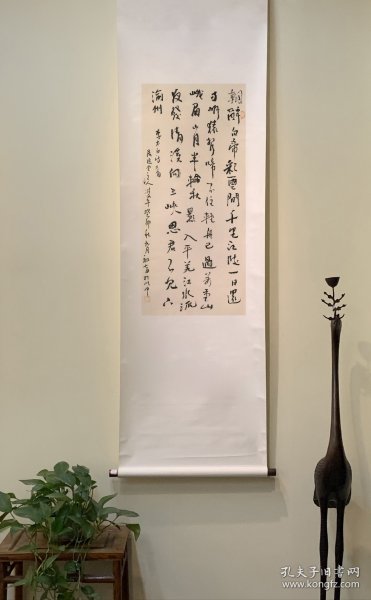 朝辞白帝彩云间千里江陵一日还
两岸猿声啼不住轻舟已过万重山
峨眉山月半轮秋影入平羌江水流
夜发清溪向三峡思君不见下
渝州
李太白诗二首
孔夫子旧书网
www.kongfz.com